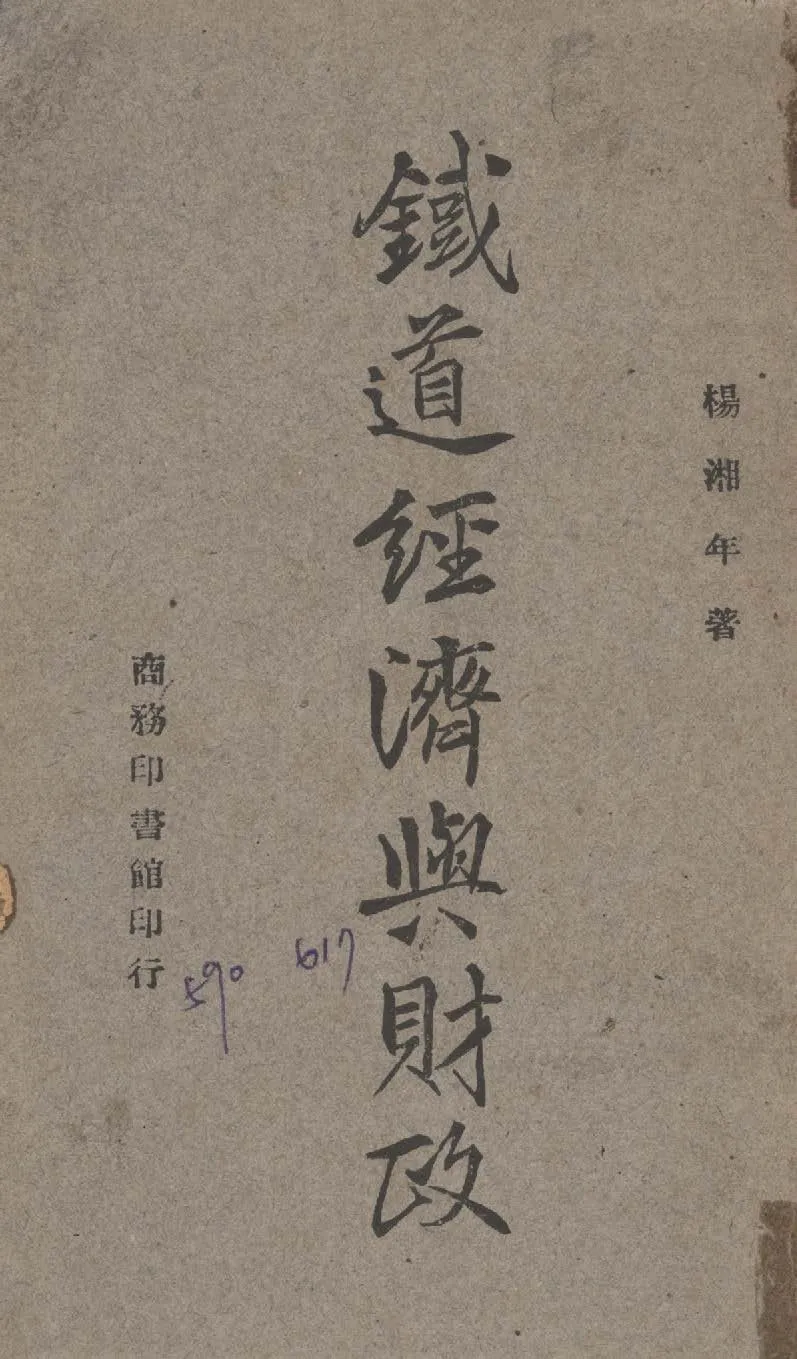 楊湘年著
鐵道經濟與財政
商務印書館印行
617
590